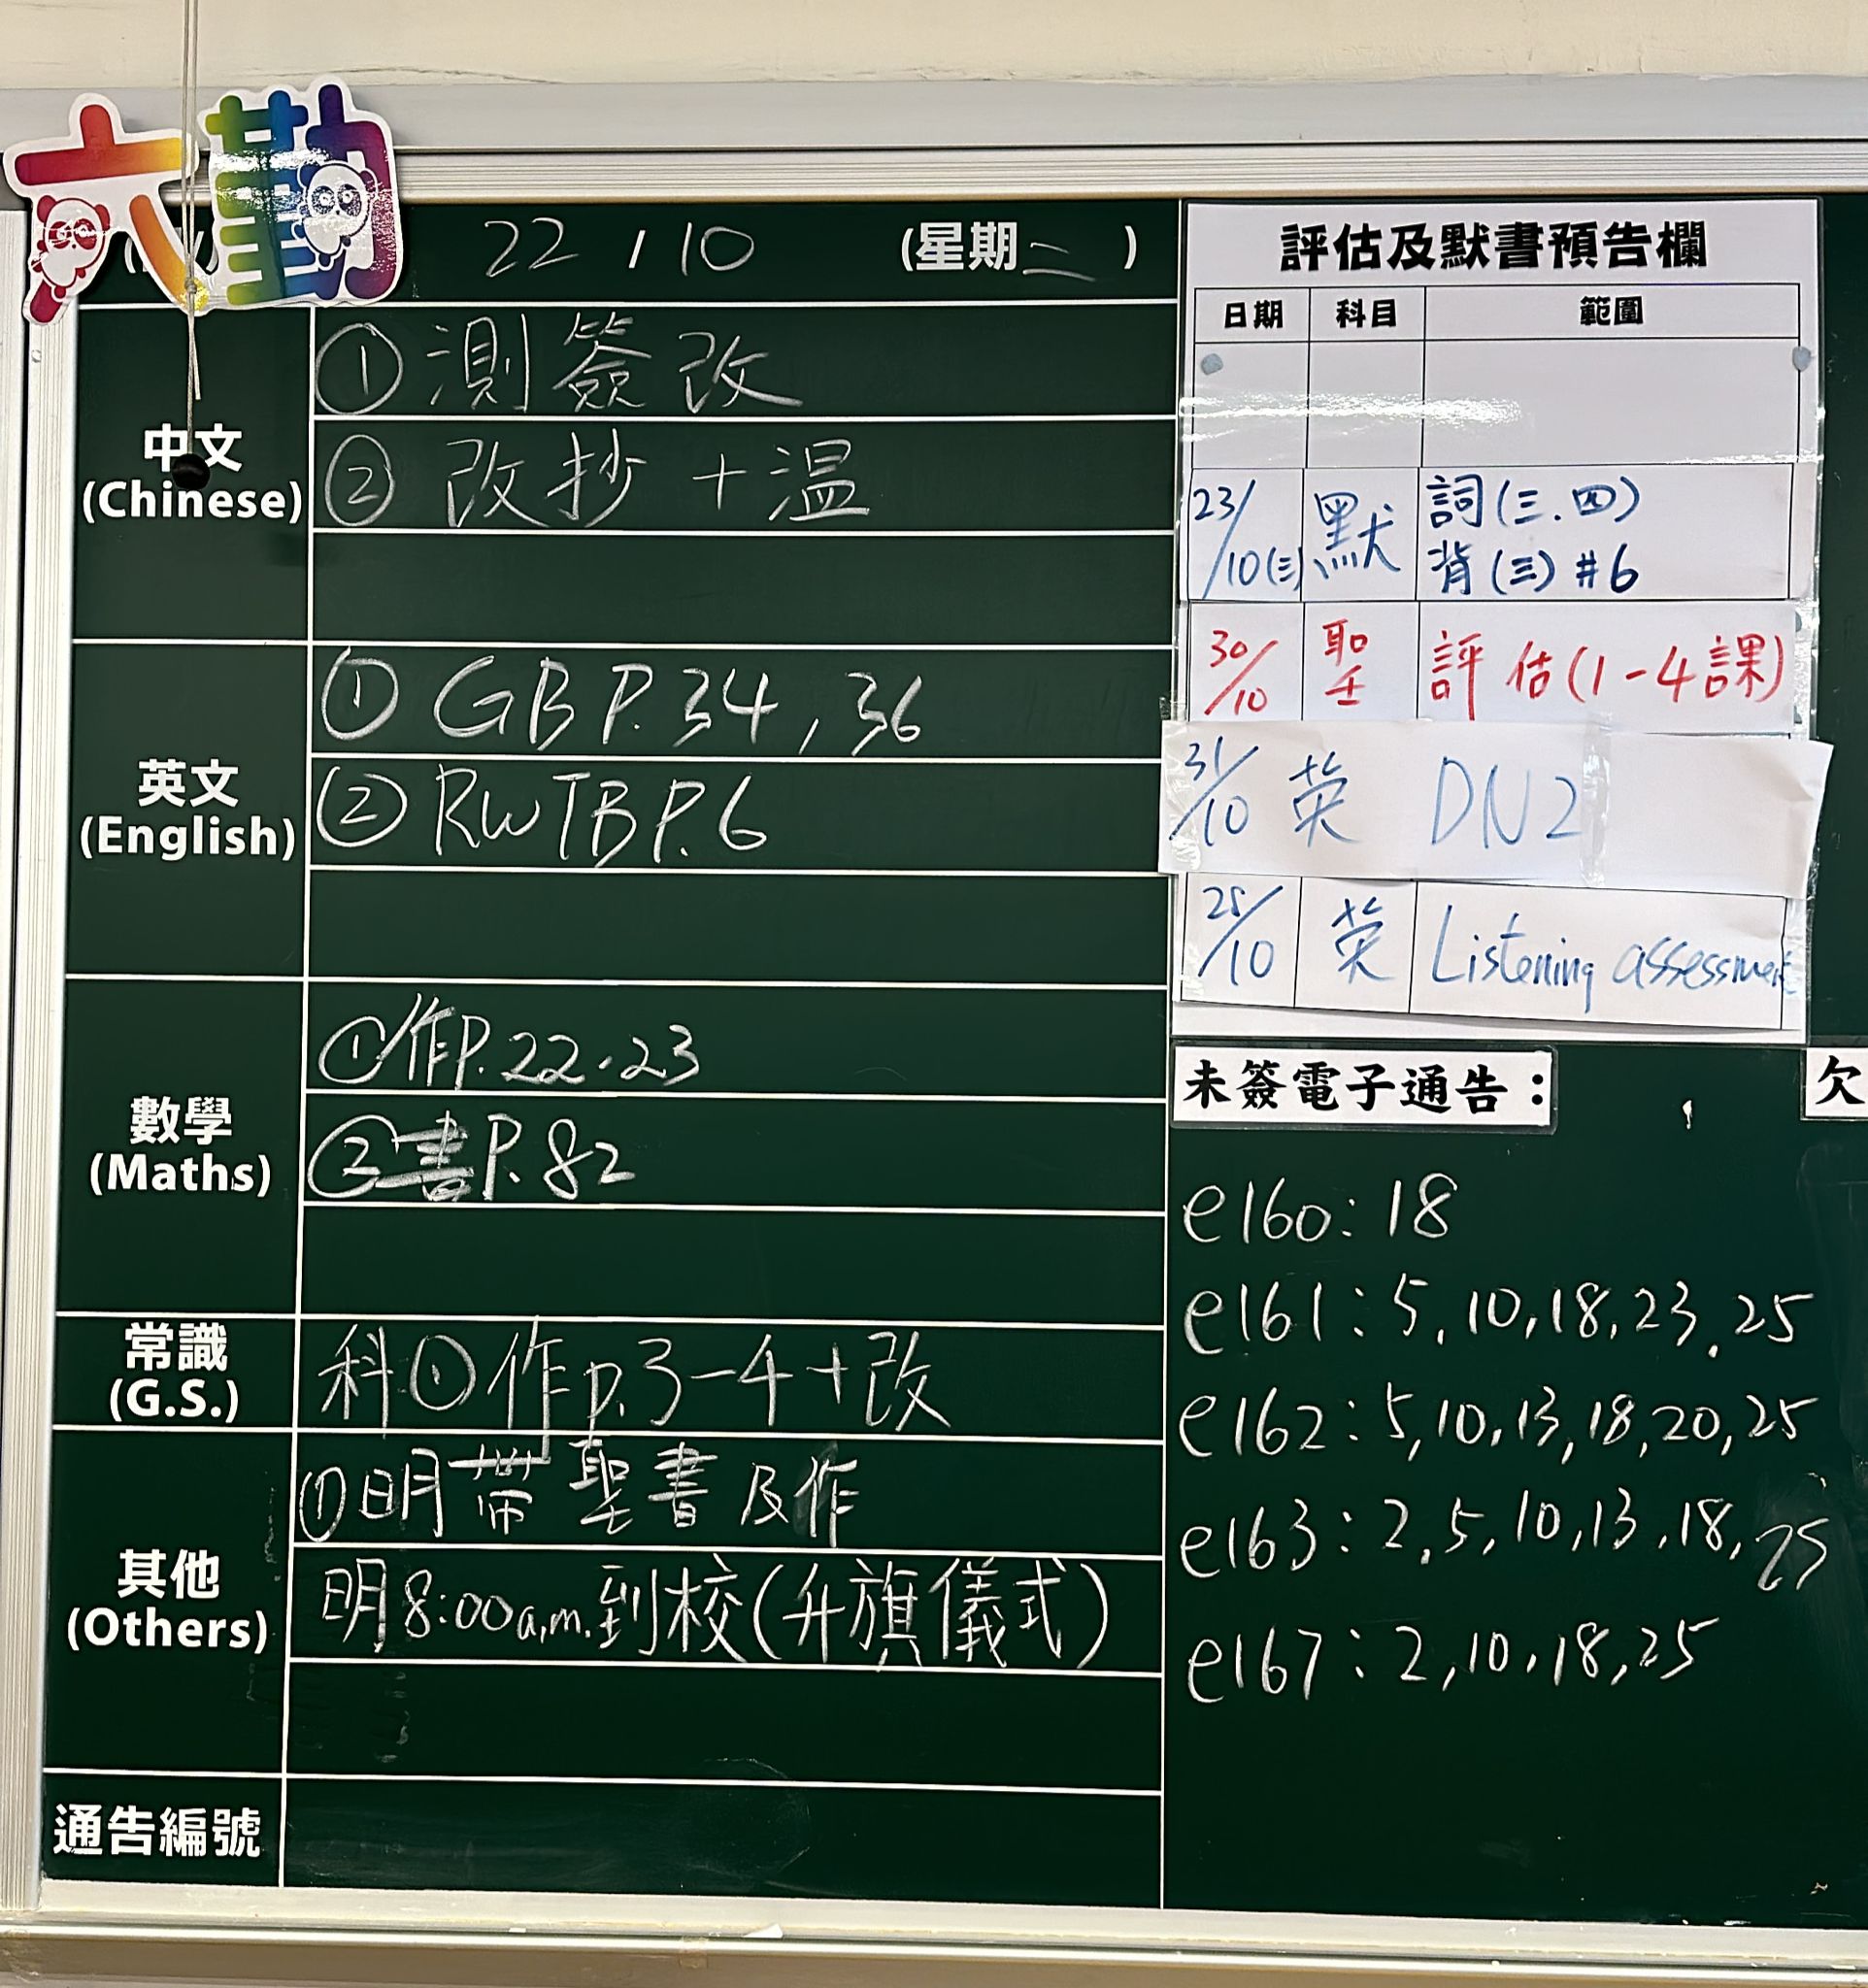 六勤
22 / 10 (星期二)
中文
(Chinese)
① 測簽改
② 改抄+溫
英文
(English)
① GB P.34, 36
② RWTB P.6
數學
(Maths)
① 作P.22.23
② 書P.82
常識
(G.S.)
科①作p.3-4+改
其他
(Others)
①明帶聖書及作
明8:00a.m.到校(升旗儀式)
通告編號
評估及默書預告欄
日期 科目 範圍
23/10(三) 默 詞(三.四)
背(三)#6
30/10 聖 評估(1-4課)
31/10 英 DN2
25/10 英 Listening assessment
未簽電子通告:
欠
e160: 18
e161: 5, 10, 18, 23, 25
e162: 5, 10, 13, 18, 20, 25
e163: 2, 5, 10, 13, 18, 25
e167: 2, 10, 18, 25